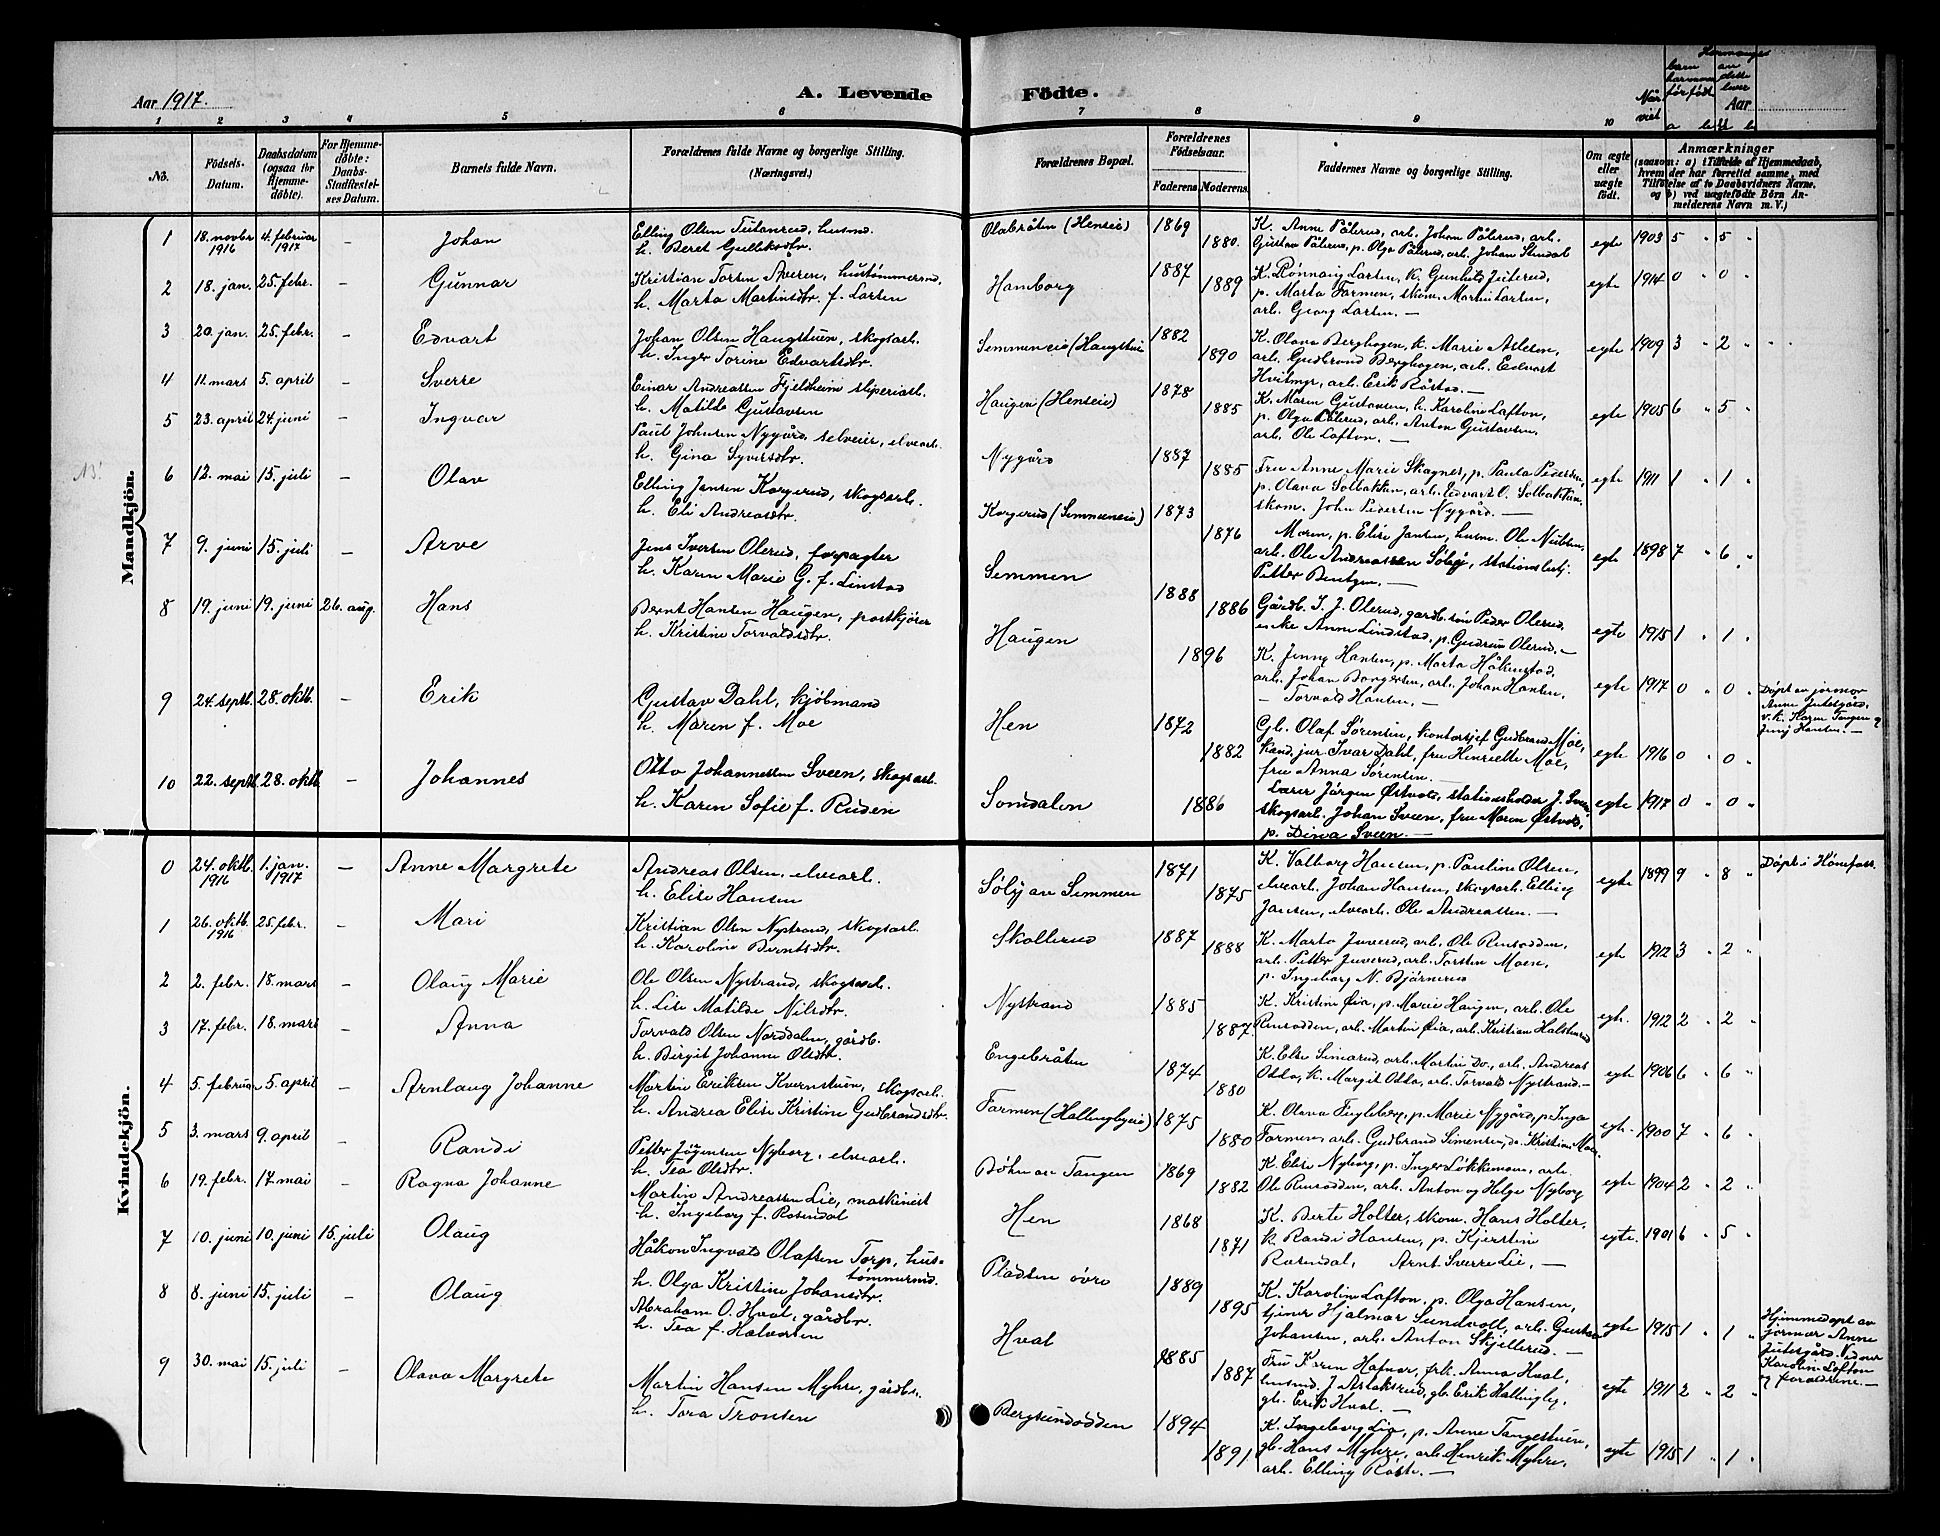 Aar 1917. A. Levende Födte.
1 2 3 4 5 6 7 8 9 10
Når viet
barn
an dette
Aar
No. Födsels-Datum. Daabsdatum (ogsaa for Hjemme-döbte). For Hjemme-döbte: Daabs-Stadfæstel-ses Datum. Barnets fulde Navn. Forældrenes fulde Navne og borgerlige Stilling. (Næringsvei.) Forældrenes Bopæl. Forældrenes Födselsaar. Faderens Moderens. Faddernes Navne og borgerlige Stilling. Om ægte eller uægte födt. Anmærkninger (saasom: a) i Tilfælde af Hjemmedaab, hvem der har forrettet samme, med Tilföielse af to Daabsvidners Navne, og b) ved uægtefödte Börn An-melderens Navn m. V.)
Mandkjön.
1 18. novbr 1916 4. februar 1917 – Johan
Elling Olsen Teitanrud, husmd.
h. Beret Gulleksdtr.
Olabråten (Henseie) 1869 1880.
K. Anne Pålerud, arb. Johan Pålerud, arb.
Gustav Pålerud, p. Olga Pålerud, arb. Johan Stendal
egte 1903 5 " 5 "
2 18. jan. 25. febr. – Gunnar
Kristian Torsen Åveren, hustömmermd,
h. Marta Martinsdtr. f. Larsen
Hamborg 1887 1889
K. Rönnaug Larsen, k. Gunhild Juterud,
p. Marta Farmen, skom. Martin Larsen,
arb. Georg Larsen. –
egte 1914 0 " 0 "
3 20. jan. 25. febr. – Edvart
Johan Olsen Haugstuen, skogsarb.
h. Inger Torine Edvartsdtr.
Semmeneie (Haugstuen 1882 1890
K. Olava Berghagen, k. Marie Aslesen,
arb. Gudbrand Berghagen, arb. Edvart
Hvitmyr, arb. Erik Råstad. –
egte 1909 3 " 2 " "
4 11. mars 5. april – Sverre
Einar Andreassen Fjeldheim sliperiarb.
h. Matilde Gustavsen
Haugen (Henseie) 1878 1885
K. Maren Gustavsen, k. Karoline Lafton,
p. Olga Pålerud, arb. Anton Gustavsen,
arb. Ole Lafton. –
egte 1905 6 " 5 "
5 23. april 24. juni – Ingvar
Paul Johnsen Nygård, selveier, elvearb.
h. Gina Syversdtr.
Nygård 1887 1885
Fru Anne Marie Skagnes, p. Paula Pedersen,
p. Olava Solbakken, arb. Edvart O. Solbakken,
skom. John Pedersen Nygård. –
egte 1911 1 " 1 "
6 12. mai 15. juli – Olav
Elling Jansen Korgerud, skogsarb.
h. Eli Andreasdtr.
Korgerud (Semmeneie) 1873 1876
Moren, p. Elise Jansen, husm. Ole Neibsen,
arb. Ole Andreassen Söløj, stationsbetj.
Petter Bentzen. –
egte 1898 7 " 6 "
7 9. juni 15. juli – Arve
Jens Iversen Olerud, forpagter
h. Karen Marie G. f. Linstad
Semmen 1888 1886
Gårdb. I. J. Olerud, gardb. sön Peder Olerud,
enke Anne Lindstad, p. Gudrun Olerud. –
egte 1915 1 " 1 "
8 19. juni 19. juni 26. aug. Hans
Bernt Hansen Haugen, postkjörer
h. Kristine Torvaldsdtr.
Haugen 1896
K. Jenny Hansen, p. Marta Håkenstad,
arb. Johan Borgersen, arb. Johan Hansen,
– Torvald Hansen, –
egte 1917 0 " 0 "
Döpt av jormor
Anne Jutesgård,
v. k. Karen Tangen og
Jenny Hansen. –
9 24. septb. 28. oktb. – Erik
Gustav Dahl, kjöbmand
h. Maren f. Moe
Hen 1872 1882
Gb. Olaf Sörensen, kontorsjef Gudbrand Moe,
kand. jur. Ivar Dahl, fru Henriette Moe,
fru Anna Sörensen. –
egte 1916 0 " 0 "
10 22. septb. 28. oktb. – Johannes
Otto Johannessen Sveen, skogsarb.
h. Karen Sofie f. Ruden
Somdalen 1886
Lærer Jörgen Østvold, stationsholder J. Sveen
skogsarb. Johan Sveen, fru Maren Østvold,
p. Dina Sveen. –
egte 1917 0 " 0 "
Kvindekjön.
0 24. oktb. 1916 1. jan. 1917 – Anne Margrete
Andreas Olsen, elvearb.
h. Elise Hansen
Söløj av Semmen 1871 1875
K. Valborg Hansen, p. Pauline Olsen,
elvearb. Johan Hansen, skogsarb. Elling
Jansen, elvearb. Ole Andreassen. –
egte 1899 9 " 8 "
Döpt i Hönefoss.
1 26. oktb. 1916 25. febr. – Mari
Kristian Olsen Nystrand, skogsarb.
h. Karoline Berntsdtr.
Skollerud 1887 1888
K. Marta Juverud, arb. Ole Rensodden,
arb. Petter Juverud, arb. Torsten Moen,
p. Ingeborg N. Bjørnerud
egte 1912 3 " 2 "
2 2. febr. 18. mars – Olaug Marie
Ole Olsen Nystrand, skogsarb.
h. Lise Matilde Nilsdtr.
Nystrand 1885 1887.
K. Kristine Øia, p. Marie Haugen, arb. Ole
Rensodden, arb. Martin Øia, arb. Kristian Halstenrud
egte. 1912 2 " 2 "
3 17. febr. 18. mars – Anna
Torvald Olsen Norddalen, gårdb.
h. Birgit Johanne Olsdtr.
Engebråten 1874 1880
K. Else Simarud, arb. Martin Do., arb. Andreas
Odda, k. Margit Odda, arb. Torvald Nystrand. –
egte 1906 6 " 6 "
4 5. februar 5. april – Arnlaug Johanne
Martin Eriksen Kvernstuen, skogsarb.
h. Andrea Elise Kristine Gudbrandsdtr.
Farmen (Hallingbyeie) 1875 1880
K. Olava Fingleberg, p. Marie Nygård, p. Inga
Farmen, arb. Gudbrand Simensen, do. Kristian Moe.
egte. 1900 7 " 6 "
5 3. mars 9. april – Randi
Petter Jörgensen Nyborg, elvearb.
h. Tea Olsdtr.
Böhn av Tangen 1869 1882
K. Elise Nyborg, p. Inger Lökkemoen, arb.
Ole Rensodden, arb. Anton og Helge Nyborg
egte 1904 2 " 2 "
6 19. febr. 17. mai – Ragna Johanne
Martin Andreassen Lie, maskinist
h. Ingeborg f. Rosendal
Hen 1868 1871
K. Berte Holter, skom. Hans Holter,
k. Randi Hansen, p. Kjerstin
Rosendal, Arnt Sverre Lie, –
egte. 1901 6 " 5 "
7 10. juni 10. juni 15. juli Olaug
Håkon Ingvald Olafsen Torp, hus=
tömmermd.
h. Olga Kristine Johansdtr.
Pladsen övre 1889 1895
K. Karoline Lafton, p. Olga Hansen,
tjener Hjalmar Sundvoll, arb. Gustav
Johansen, arb. Anton Skjellerud. –
egte 1915 1 " 1 "
Hjemmedöpt av
jormor Anne
Jutesgård. Vidner
Karolin Lofton
og forældrene. –
8 8. juni 15. juli – Olaug
Abraham O. Hval, gårdbr.
h. Tea f. Halvorsen
Hval 1885 1887
Fru Karen Hafnor, frk. Anna Hval,
husmd. J. Aslaksrud, gb. Erik Hallingby,
gb. Erik Hval. –
egte 1911 2 " 2 "
9 30. mai 15. juli – Olava Margrete
Martin Hansen Myhre, gårdbr.
h. Tora Tronsen
Bergsundodden 1894 1891
K. Ingeborg Lia, p. Anne Tangestuen,
gb. Hans Myhre, arb. Henrik Myhre,
arb. Elling Röste. –
egte 1915 1 " 1 "